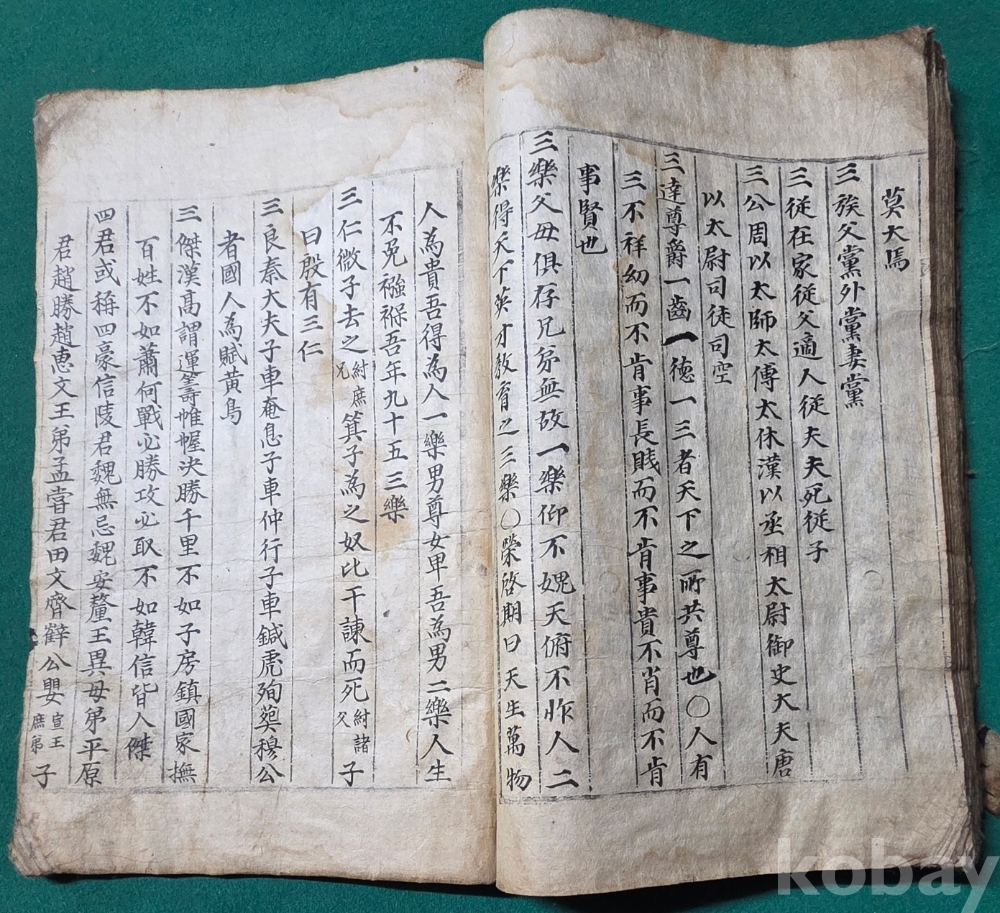 莫大焉
三族父黨外黨妻黨
三從在家從父適人從夫夫死從子
三公周以太師太傅太休漢以丞相太尉御史大夫唐
以太尉司徒司空
三達尊爵一齒一徳一三者天下之所共尊也〇人有
三不祥幼而不肯事長賎而不肯事貴不肖而不肯
事賢也
三樂父母俱存兄弟無故一樂仰不愧天俯不怍人二
樂得天下英才教育之三樂〇榮啓期曰天生萬物
人為貴吾得為人一樂男尊女卑吾為男二樂人生
不免襁褓吾年九十五三樂
三仁微子去之紂庶兄箕子為之奴比干諫而死紂諸父子
曰殷有三仁
三良秦大夫子車奄息子車仲行子車鍼虎殉葬穆公
者國人為賦黃鳥
三傑漢髙謂運籌帷幄決勝千里不如子房鎮國家撫
百姓不如蕭何戰必勝攻必取不如韓信皆人傑
四君或稱四豪信陵君魏無忌魏安釐王異母弟平原
君趙勝趙惠文王弟孟嘗君田文齊薛公嬰宣王庶弟子
kobay